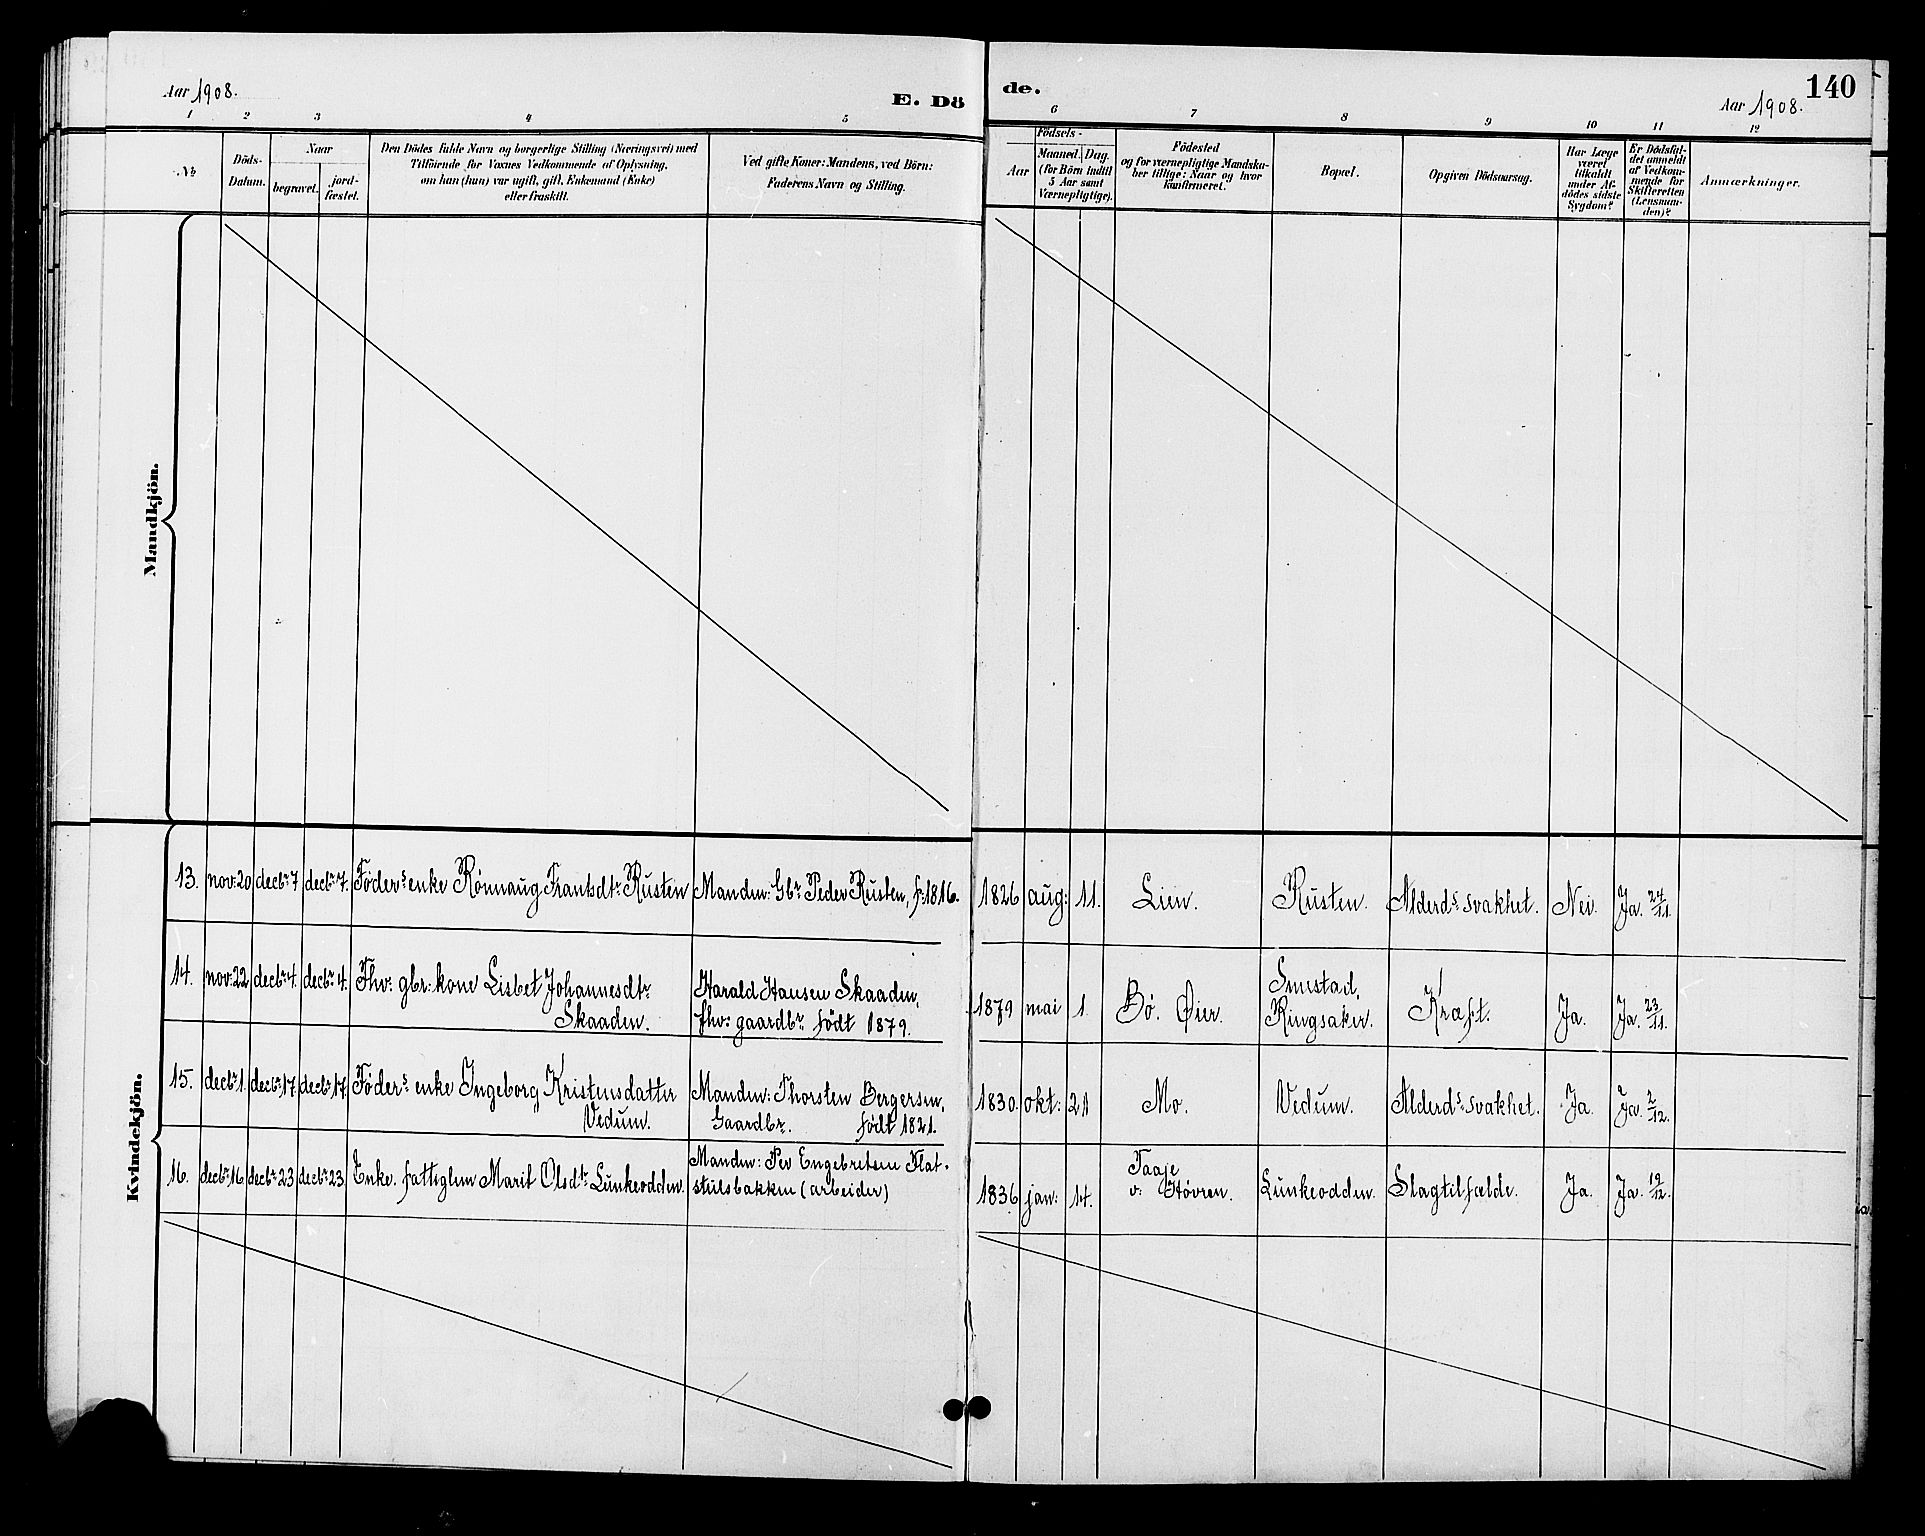 Aar 1908.
E. Dö
de.
Aar 1908.
140
1 2 3 4 5 6 7 8 9 10 11 12
No
Döds-
Datum.
Naar
begravet.
jord-
fæstet.
Den Dödes fulde Navn og borgerlige Stilling (Næringsvei) med
Tilföiende for Voxnes Vedkommende af Oplysning,
om han (hun) var ugift, gift, Enkemand (Enke)
eller fraskilt.
Ved gifte Koner: Mandens, ved Börn:
Faderens Navn og Stilling.
Födsels-
Aar
Maaned.
Dag.
(for Börn indtil
5 Aar samt
Værnepligtige).
Födested
og for værnepligtige Mandska-
ber tillige: Naar og hvor
konfirmeret.
Bopæl.
Opgiven Dödsaarsag.
Har Læge
været
tilkaldt
under Af-
dödes sidste
Sygdom?
Er Dödsfal-
det anmeldt
af Vedkom-
mende for
Skifteretten
(Lensman-
den)?
Anmærkninger.
Mandkjön.
Kvindekjön.
13. nov: 20 decbr 7 decbr 7. Föders enke Rönnaug Frantsdtr Rusten Manden: Gbr Peder Rusten, f: 1816. 1826 aug: 11. Lien. Rusten. Alderds svakhet. Nei. Ja. 24/11.
14. nov: 22 decbr 4. decbr 4. Fhv: gbr: kone Lisbet Johannesdtr
Skaaden.
Harald Hansen Skaaden,
fhv: gaardbr født 1879.
1879 mai 1. Bö. Øier.
Smestad,
Ringsaker.
Kræft. Ja. Ja. 23/11.
15. decbr 1. decbr 17 decbr 17. Föders enke Ingeborg Kristensdatter
Vedum.
Manden: Thorsten Bergersen,
Gaardbr. født 1821.
1830. okt: 21 Mo. Vedum. Alderds svakhet. Ja. Ja. 2/12.
16. decbr 16 decbr 23 decbr 23. Enke. fattiglem Marit Olsdtr Lunkeodden.
Manden: Per Engebretsen Flat-
stulsbakken (arbeider)
1836 jan: 14.
Taaje
v: Høvren.
Lunkeodden. Slagtilfælde. Ja. Ja. 19/12.